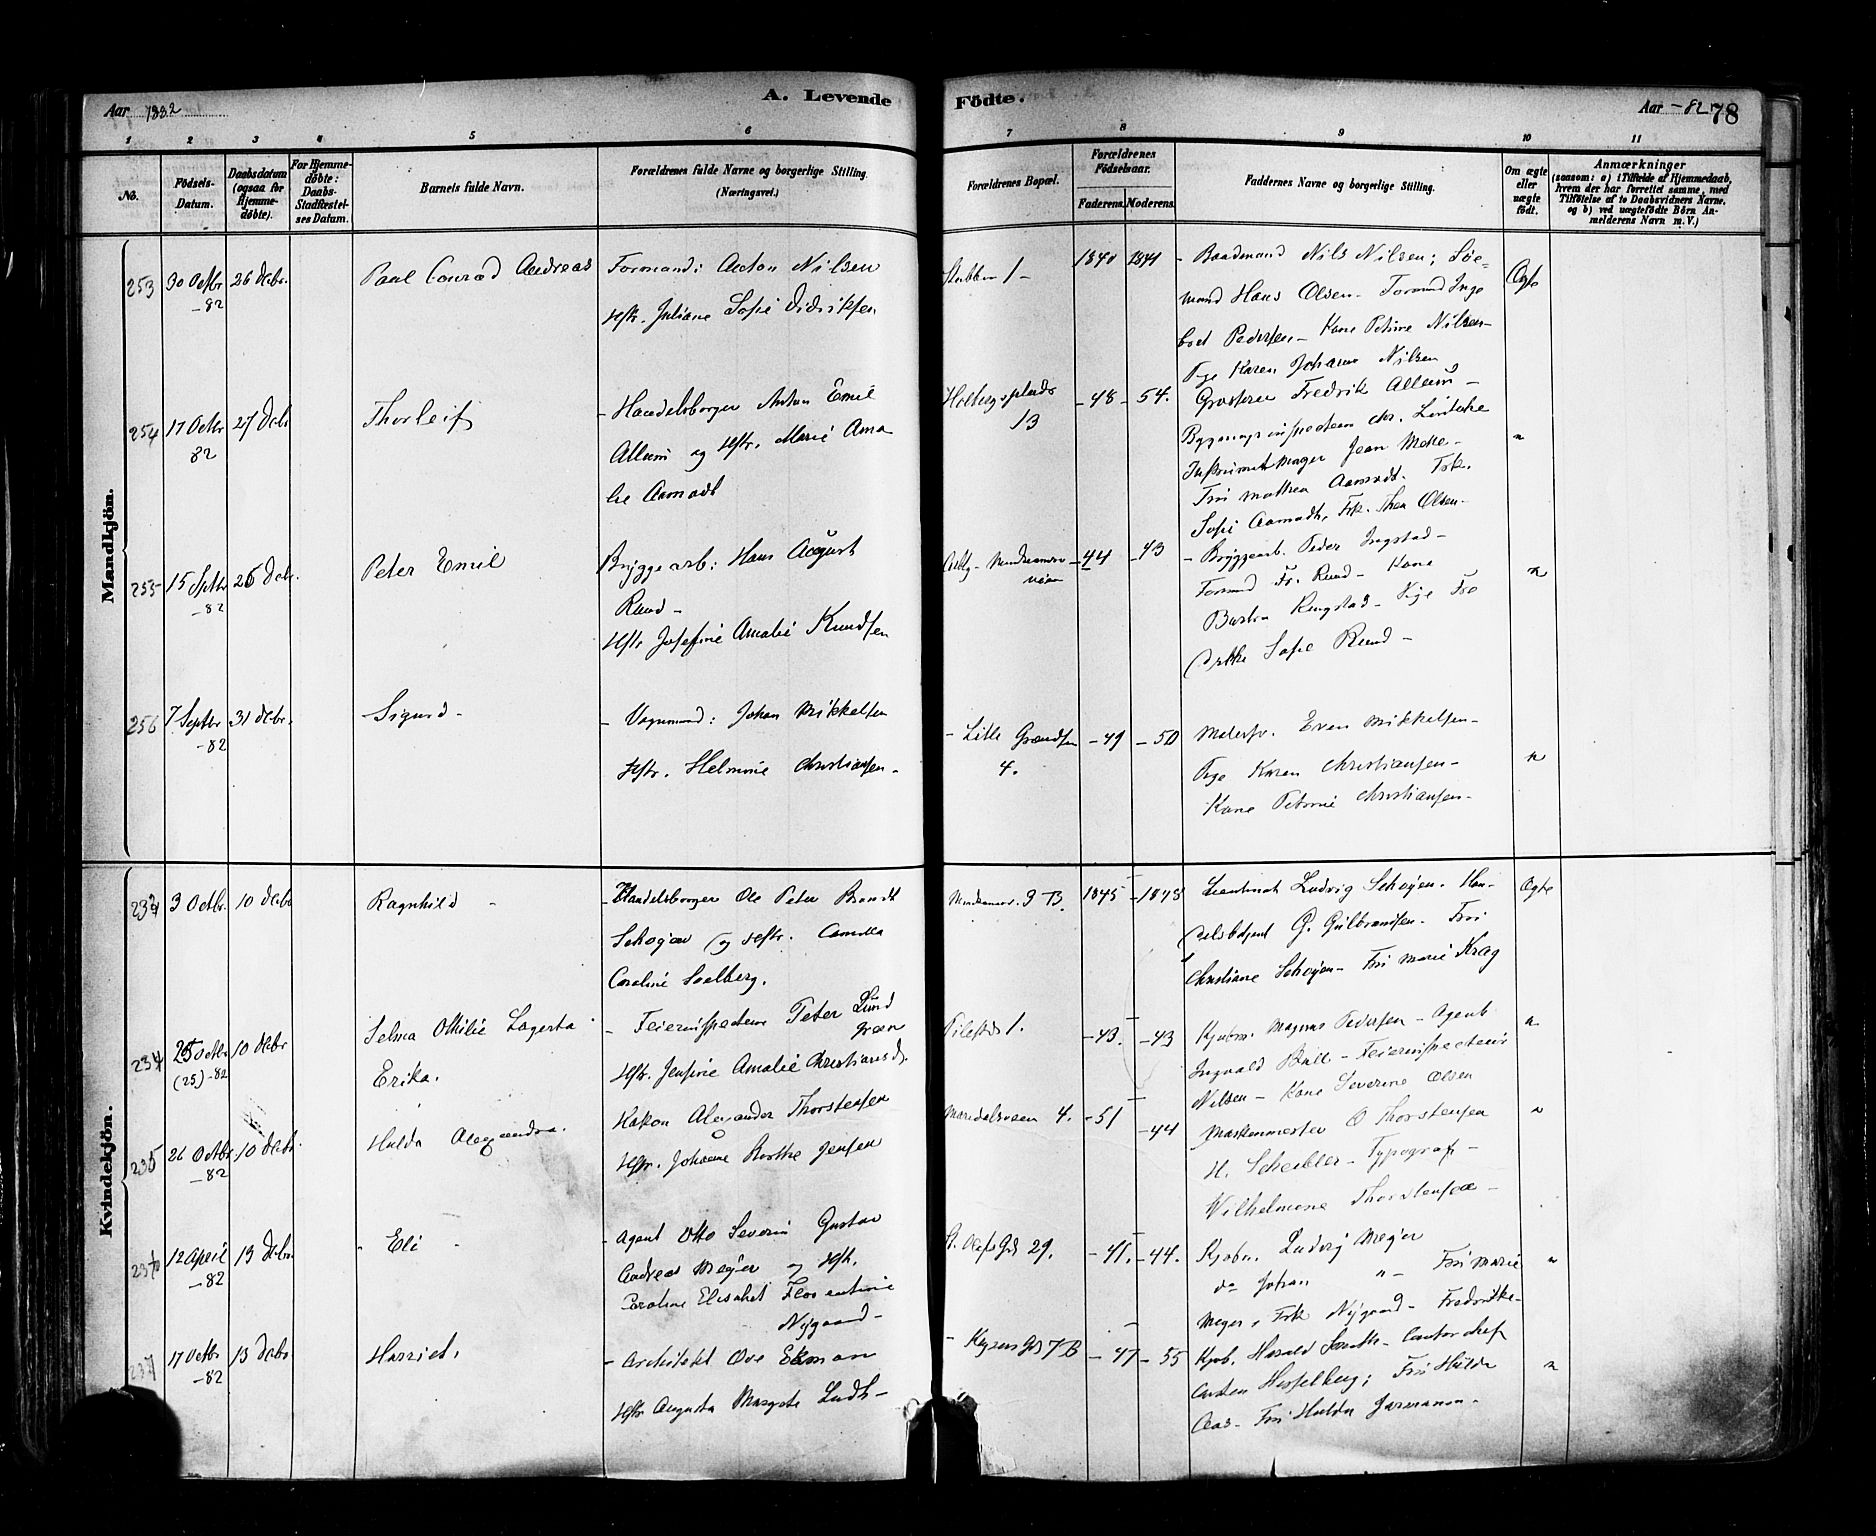 Aar 1882
A. Levende
Födte.
Aar -82
78
1 2 3 4 5 6 7 8 9 10 11
No.
Födsels-Datum.
Daabsdatum (ogsaa for Hjemme-døbte).
For Hjemme-døbte: Daabs-Stadfæstel-ses Datum.
Barnets fulde Navn.
Forældrenes fulde Navne og borgerlige Stilling.
(Næringsvei.)
Forældrenes Bopæl.
Forældrenes Fødselsaar.
Faderens. Moderens.
Faddernes Navne og borgerlige Stilling.
Om ægte eller uægte født.
Anmærkninger
(saasom: a) i Tilfælde af Hjemmedaab,
hvem der har forrettet samme, med
Tilføielse af to Daabsvidners Navne,
og b) ved uægtefødte Børn An-
melderens Navn m. V.)
Mandkjön.
253 30 Octbr -82 26 Decbr. Paul Conrad Andreas
Formand: Anton Nilsen
Hstr. Juliane Sofie Didriksen
1 - 1840 1841
- Baadsmand Nils Nilsen; Söe-
mand Hans Olsen - Formand Inge
Pedersen - Kone Petrine Nilsen -
Pge Karen Johanne Nilsen
Ægte
254 17 Octbr 82 27 Decbr Thorleif
- Handelsborger Anton Emil
Allum og Hstr. Marie Ama
lie Aamodt
Holbergsplads 13 - 48 - 54.
Grosserer Fredrik Allum -
Instrumentmager Jean
Fru Mathea Aamodt. Frk.
Sofie Aamodt, Frk. Thea Olsen -
"
255 15 Septbr -82 26 Decbr. Peter Emil
Bryggearb: Hans August
Ruud -
Hstr. Josefine Amalie Knudsen
- 44 - 43
- Bryggearb. Peder Ingstad -
Formand Fr. Ruud - Kone
Ringstad - Pige
Sofie Ruud -
"
256 7 Septbr -82 31 Decbr. Sigurd -
- Vognmand: Johan Mikkelsen
Hstr. Helmine Christiansen -
- Lille Grændsen 4. - 49 - 50
Malersv. Even Mikkelsen -
Pige Karen Christiansen -
Kone Petrine Christiansen -
"
Kvindekjön.
233 3 Octbr. 10 Decbr Ragnhild -
- Handelsborger Ole Peter Brandt
Schøyen og Hstr. Camilla
Caroline Saalberg.
9 B. 1845 - 1848
Ludvig Schøyen. Han-
delsbetjent G. Gulbrandsen - Fru
Christiane Schøyen - Fru Marie Krag
Ægte
234 25 Octbr (25) -82 10 Decbr Selma Othilie Lagerta
Erika.
- Feierinspecteur Peter Lund
Hstr. Jensine Amalie Christiansdr.
Pilestrd 1. - 43. - 43
Kjøbm. Magnus Pedersen - Agent
Ingvald Bull - Feierinspecteur
Nilsen - Kone Severine Olsen
"
235 26 Octbr. -82 10 Decbr. Hulda Alexandra.
Hakon Alexander Thorstensen
Hstr. Johanne Berthe Jensen
Maridalsveien 4. - 51 - 44
Maskinmester O Thorstensen
H. Scheibler - Typograf -
Wilhelmine Thorstensen -
"
236 12 April -82 13 Decbr. - Eli -
- Agent Otto Severin Gustav
Andreas Meyer og Hstr.
Caroline Elisabet Florentine
Nygaard -
St. Olafs Gd 29. - 41. - 44.
Kjøbm. Ludvig Meyer
do Johan " - Fru Marie
Meyer, Frk Nygaard - Fredrikke -
"
237 17 Octbr -82 13 Decbr Harriet.
- Architekt Ove Ekman
Hstr Augusta Margrete Ludt -
- Keysers Gd 7 B - 47 - 55
Kjøb. Harald Smith - Contorchef
Carsten Hesselberg; Fru Hilda
Aas - Fru Hulda Jarmann -
"